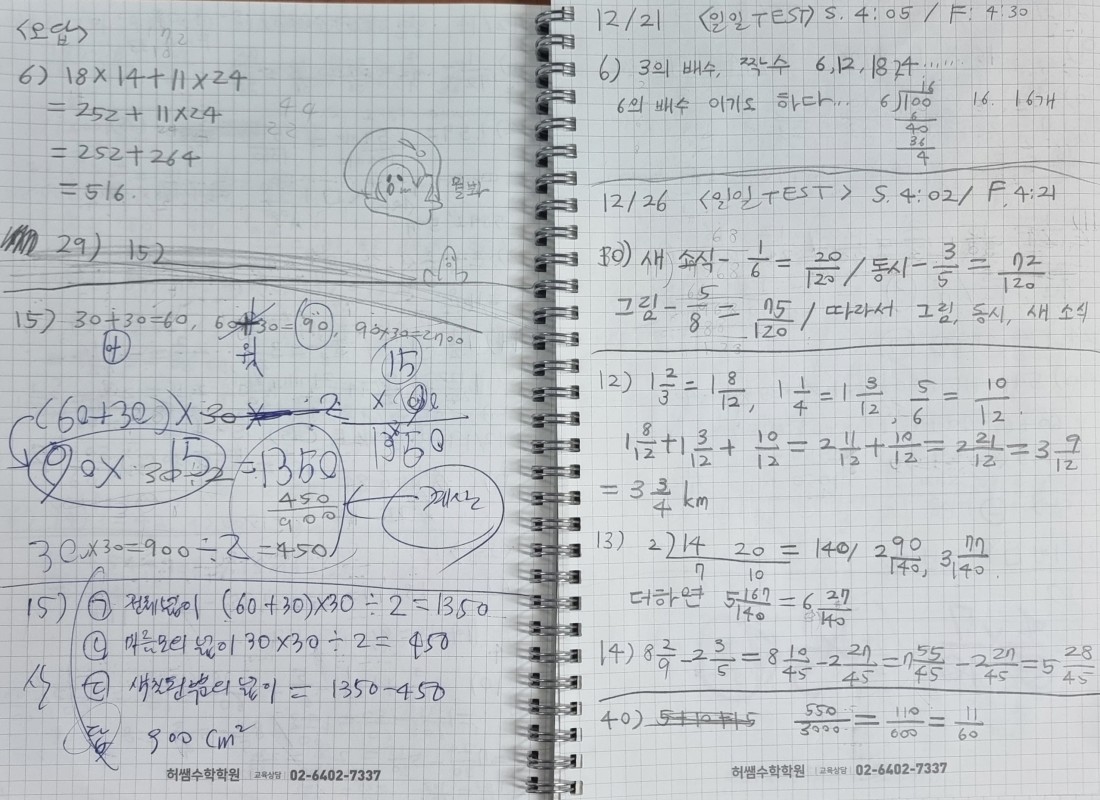 <오답>
6) 18×14+11×24
=252+11×24
=252+264
=516.
29) 15)
15) 30+30=60, 60+30=90, 90×30=2700
(60+30)×30× ÷2
15
1350
90×15=1350
450
900
계산
30×30=900÷2=450
15) ㉠ 전체넓이 (60+30)×30÷2=1350
㉡ 마름모의 넓이 30×30÷2=450
식 ㉢ 색칠된부분의 넓이 = 1350-450
답 900cm²
허쌤수학학원 교육상담 02-6402-7337
12/21 <일일TEST> S. 4:05 / F. 4:30
6) 3의 배수, 짝수 6,12,18,24……
6의 배수 이기도 하다… 6)100 16. 16개
16
6
40
36
4
12/26 <일일TEST> S. 4:02/ F. 4:21
30) 새 소식- 1/6 = 20/120 / 동시- 3/5 = 72/120
그림- 5/8 = 75/120 / 따라서 그림, 동시, 새 소식
12) 1 2/3 = 1 8/12, 1 1/4 = 1 3/12, 5/6 = 10/12.
1 8/12 + 1 3/12 + 10/12 = 2 11/12 + 10/12 = 2 21/12 = 3 9/12
= 3 3/4 km
13) 2)14 20 = 140/ 2 90/140, 3 77/140.
7 10
더하면 5 167/140 = 6 27/140
14) 8 2/9 - 2 3/5 = 8 10/45 - 2 27/45 = 7 55/45 - 2 27/45 = 5 28/45
40) 5+10+15 550/3000 = 110/600 = 11/60
허쌤수학학원 교육상담 02-6402-7337